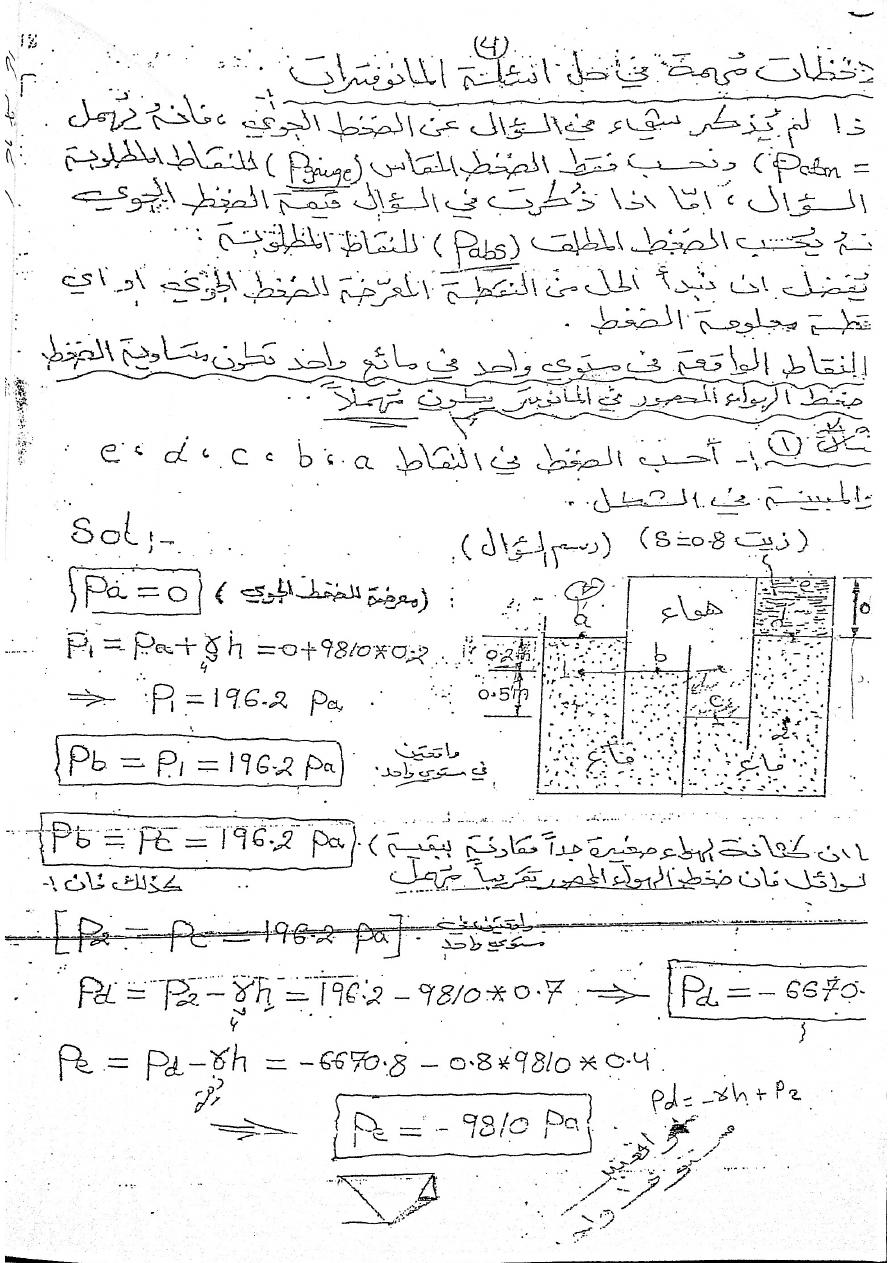 (4)
حظات مهمة في حل اسئلة المانوميترات
ذا لم يُذكر شيء في السؤال عن الضغط الجوي ، فانه يُهمل
(Patm = و نحسب فقط الضغط المقاس (Pgauge) للنقاط المطلوبة
السؤال ، امّا اذا ذُكرت في السؤال قيمة الضغط الجوي
نه يُحسب الضغط المطلق (Pabs) للنقاط المطلوبة :
يُفضل ان نبدأ الحل من النقطة المعرّضة للضغط الجوي او اي
نقطة معلومة الضغط .
النقاط الواقعة في مستوي واحد في مائع واحد تكون متساوية الضغط
ضغط الهواء المحصور في المانوميتر يكون مُهملاً
مثال (1) 1- أحسب الضغط في النقاط e ، d ، c ، b ، a
والمبينة في الشكل .
Sol:-
(رسم السؤال) (زيت S=0.8)
Pa = 0 (معرضة للضغط الجوي)
هواء
a
e
d
b
c
0.2m
0.5m
1
2
ماء
ماء
P1 = Pa + γh = 0 + 9810*0.2
⇒ P1 = 196.2 Pa
Pb = P1 = 196.2 Pa واقعتين في مستوي واحد
Pb = Pc = 196.2 Pa (لان كثافة الهواء صغيرة جداً مقارنة ببقية
لسوائل فان ضغط الهواء المحصور تقريباً مُهمل
كذلك فان :-
[P2 = Pc = 196.2 Pa] واقعتين في مستوي واحد
Pd = P2 - γh = 196.2 - 9810*0.7 ⇒ Pd = -6670.
Pe = Pd - γh = -6670.8 - 0.8*9810*0.4
Pd = -γh + P2
⇒ Pe = -9810 Pa